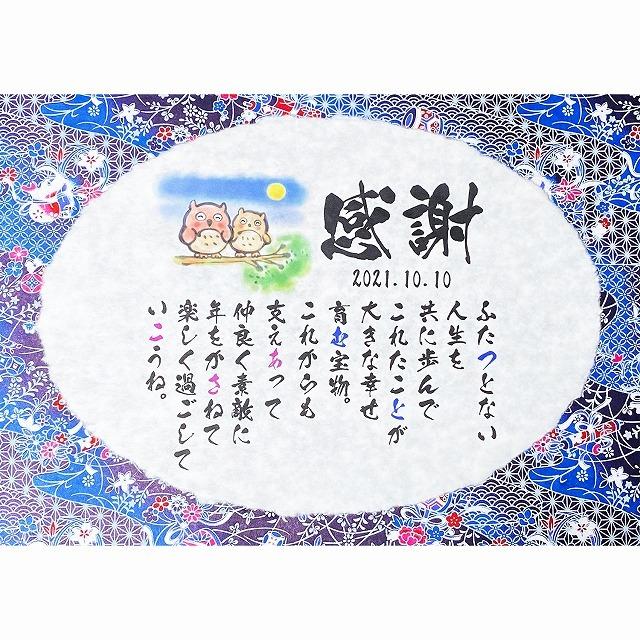 感謝
2021.10.10
ふたつとない
人生を
共に歩んで
これたことが
大きな幸せ
育む宝物。
これからも
支えあって
仲良く素敵に
年をかさねて
楽しく過ごして
いこうね。